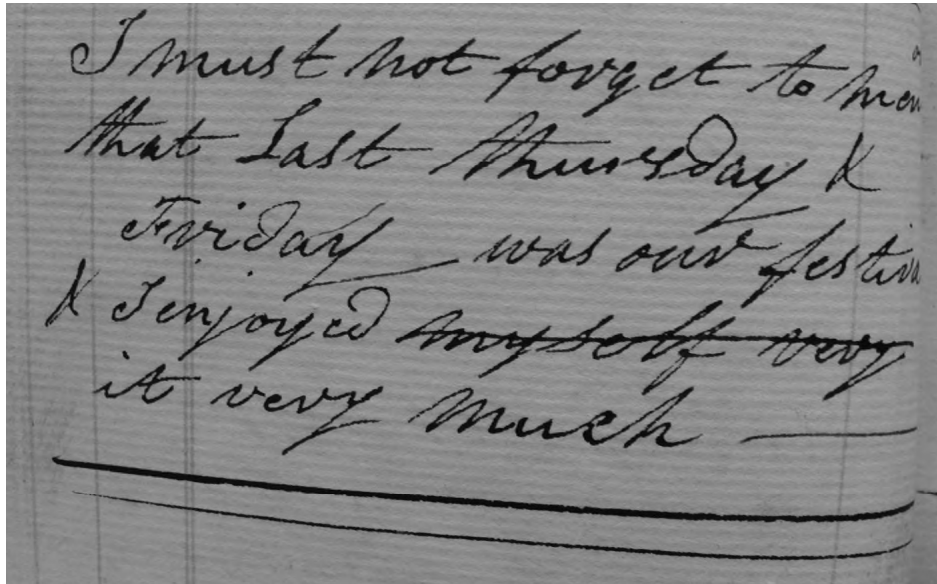 I must not forget to men
that Last Thursday &
Friday was our festiva
& I enjoyed myself very
it very much